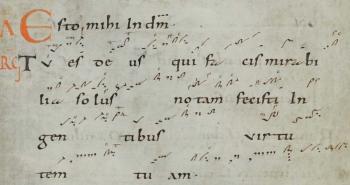 A Esto mihi In dm̄
RG TV es de us qui fa cis mirabi
lia solus notam fecisti In
gen tibus virtu
tem tu am·